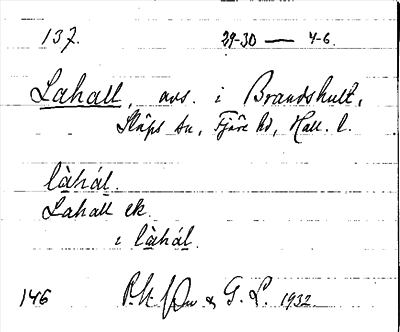 137. 29-30 — 4-6.
Lahall, avs. i Brandshult,
Släps sn, Fjäre hd, Hall. l.
làhál.
Lahall ek.
i làhál.
146 & G. L. 1932